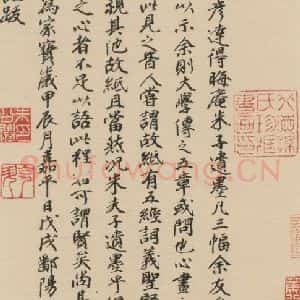 彥達得晦庵朱子遺墨凡三幅余友
以示余則大學傳之五章或問也心畫
以此見之昔人嘗謂故紙有五經詞義聖賢
視其他故紙且當然況朱夫子遺墨乎
之心者不足以語此程可謂賢矣尚其
為家寶歲甲辰月嘉平日戊戌鄱陽
跋
Shufawang.CN